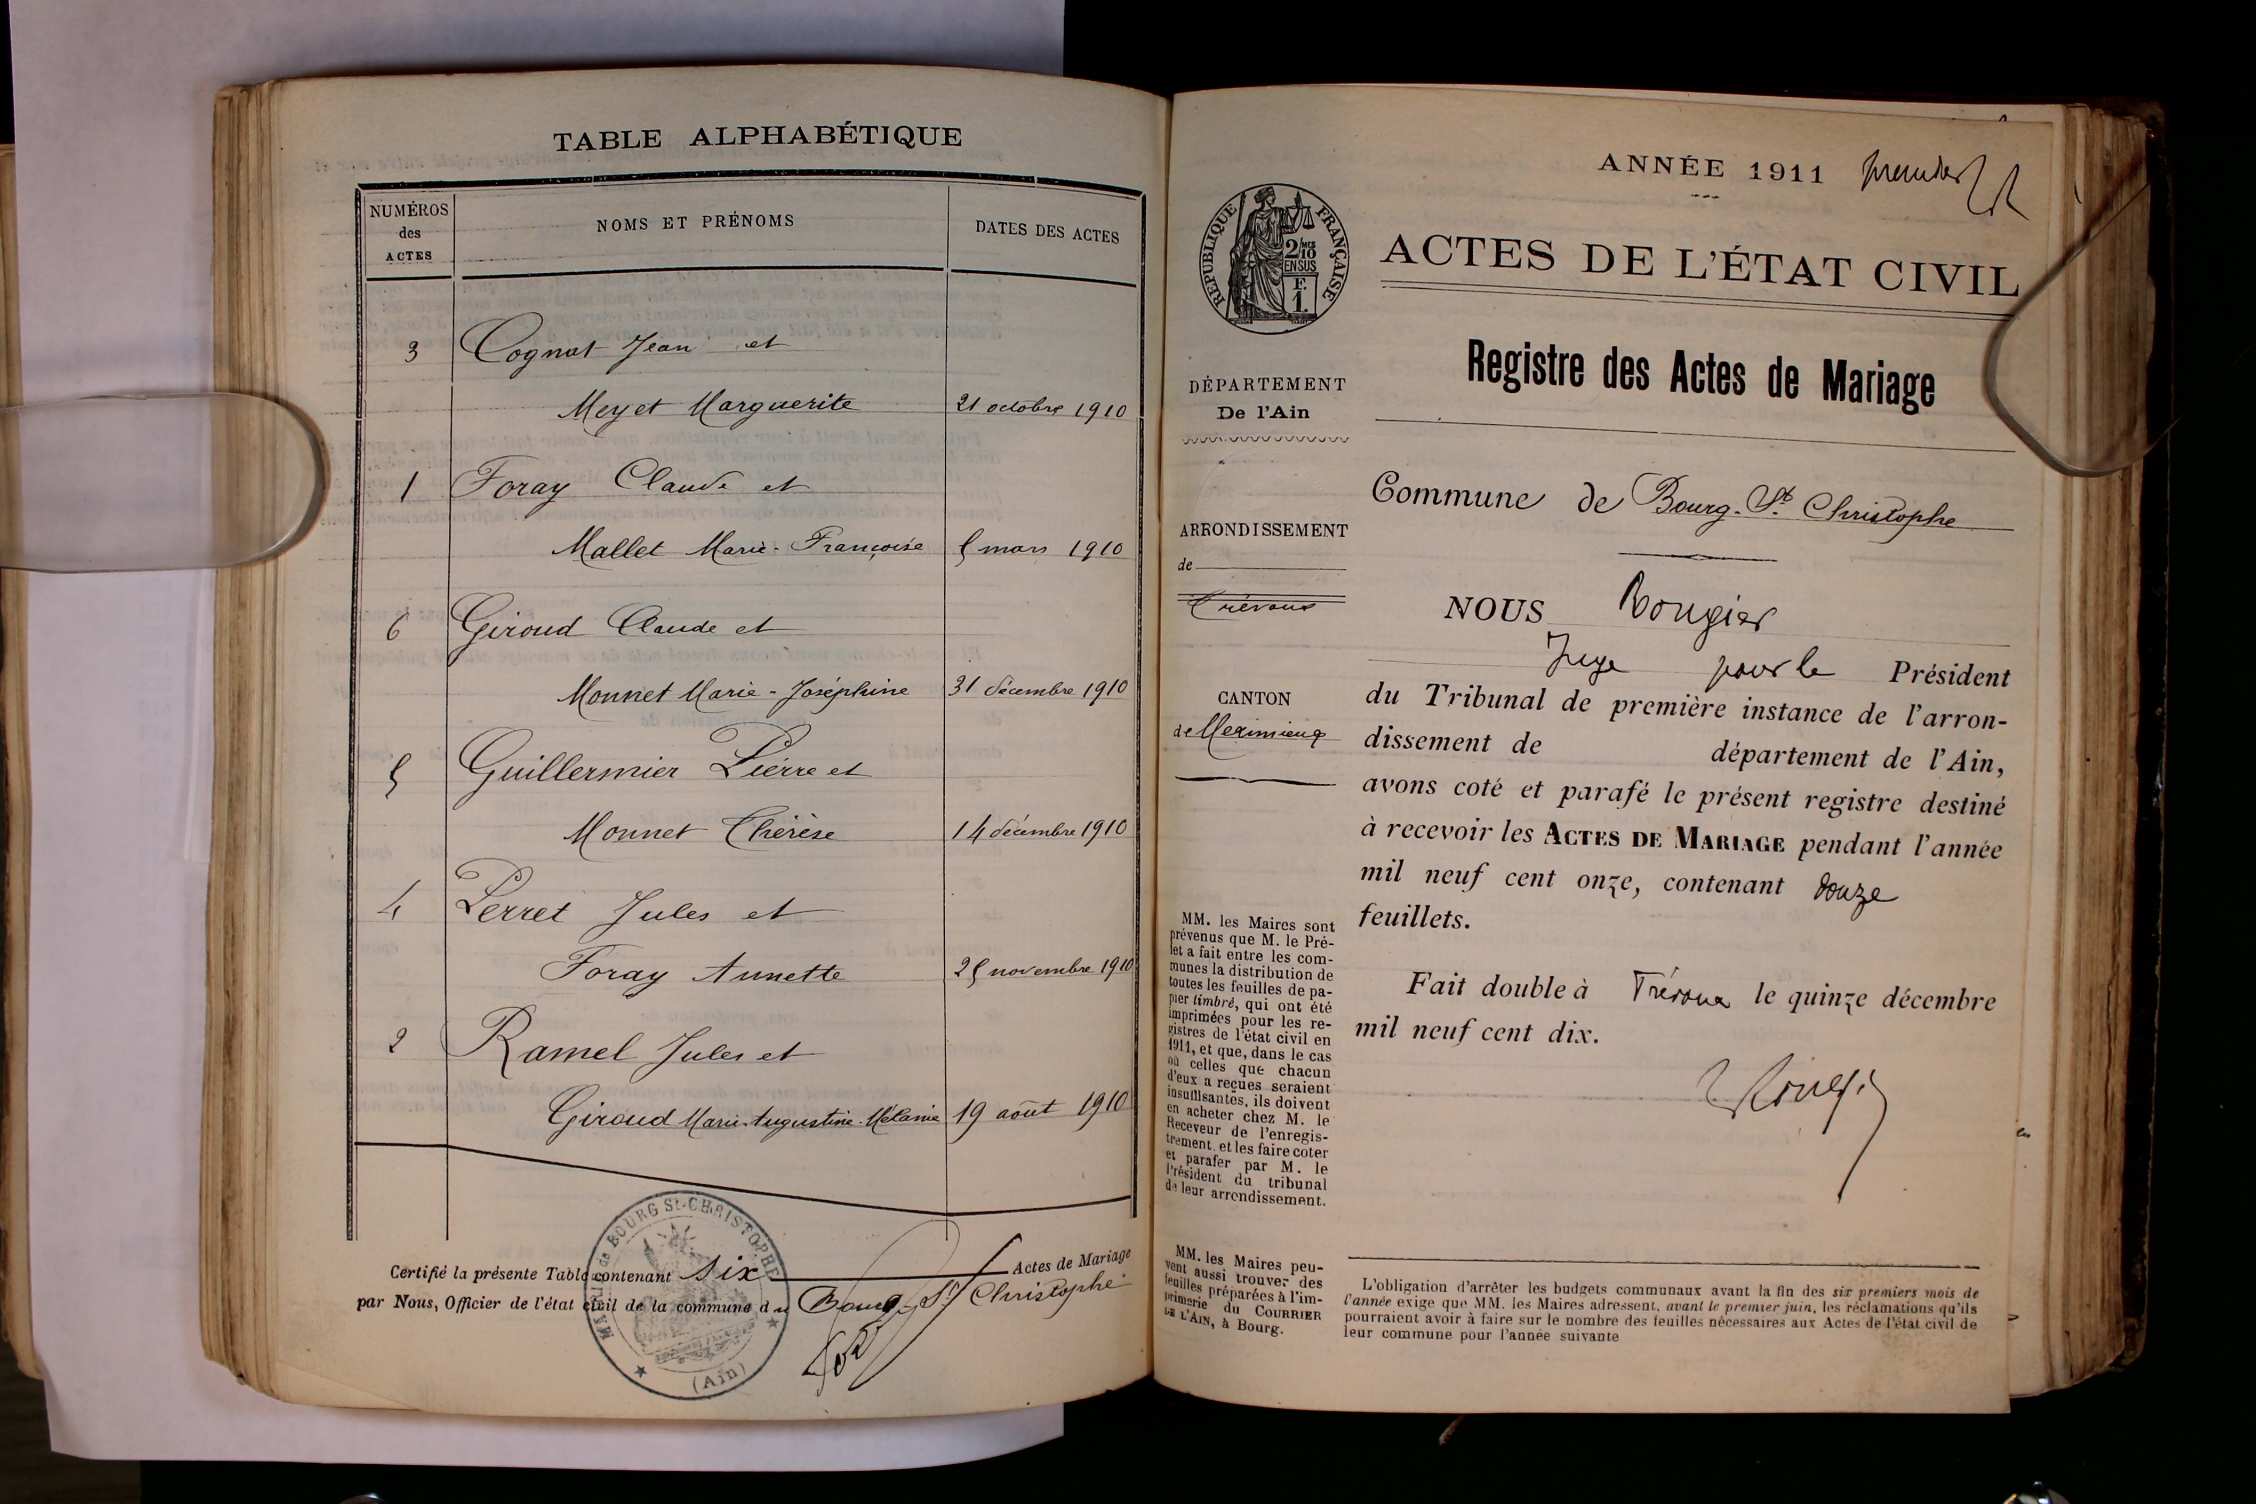 TABLE ALPHABÉTIQUE
NUMÉROS
des
ACTES
NOMS ET PRÉNOMS
DATES DES ACTES
3 Cognat Jean et
Meyet Marguerite 21 octobre 1910
1 Foray Claude et
Mallet Marie-Françoise 5 mars 1910
6 Giroud Claude et
Monnet Marie-Joséphine 31 décembre 1910
5 Guillermier Pierre et
Monnet Thérèse 14 décembre 1910
4 Perret Jules et
Foray Annette 25 novembre 1910
2 Ramel Jules et
Giroud Marie-Augustine-Mélanie 19 août 1910
Certifié la présente Table contenant six Actes de Mariage
par Nous, Officier de l'état civil de la commune du Bourg-St Christophe
MAIRIE de BOURG St-CHRISTOPHE
(Ain)
ANNÉE 1911 premier
RÉPUBLIQUE FRANÇAISE
2/10
EN SUS
F.
1.
ACTES DE L'ÉTAT CIVIL
Registre des Actes de Mariage
DÉPARTEMENT
De l'Ain
ARRONDISSEMENT
de
Trévoux
CANTON
de Meximieux
MM. les Maires sont
prévenus que M. le Pré-
fet a fait entre les com-
munes la distribution de
toutes les feuilles de pa-
pier timbré, qui ont été
imprimées pour les re-
gistres de l'état civil en
1911, et que, dans le cas
où celles que chacun
d'eux a reçues seraient
insuffisantes, ils doivent
en acheter chez M. le
Receveur de l'enregis-
trement, et les faire coter
et parafer par M. le
Président du tribunal
de leur arrondissement.
MM. les Maires peu-
vent aussi trouver des
feuilles préparées à l'im-
primerie du COURRIER
DE L'AIN, à Bourg.
Commune de Bourg-St Christophe
NOUS Rougier
Juge pour le Président
du Tribunal de première instance de l'arron-
dissement de département de l'Ain,
avons coté et parafé le présent registre destiné
à recevoir les ACTES DE MARIAGE pendant l'année
mil neuf cent onze, contenant douze
feuillets.
Fait double à Trévoux le quinze décembre
mil neuf cent dix.
Rougier
L'obligation d'arrêter les budgets communaux avant la fin des six premiers mois de
l'année exige que MM. les Maires adressent, avant le premier juin, les réclamations qu'ils
pourraient avoir à faire sur le nombre des feuilles nécessaires aux Actes de l'état civil de
leur commune pour l'année suivante